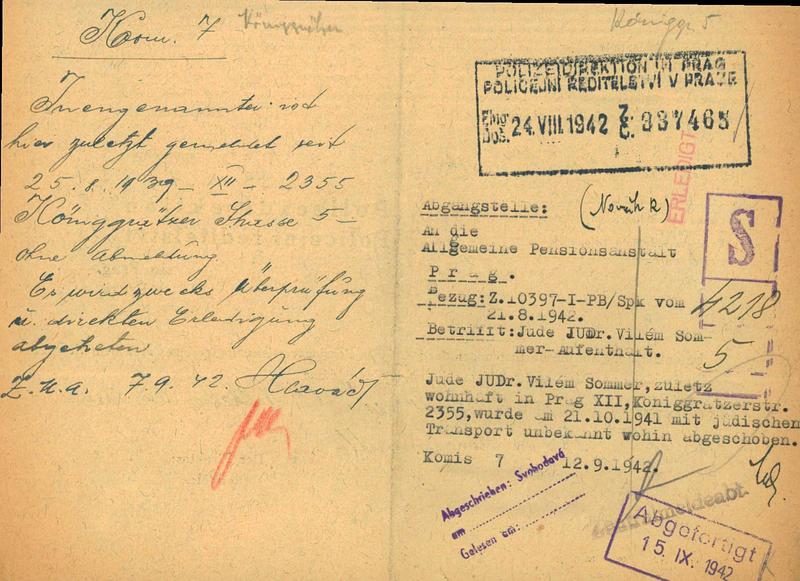 Kom. 7
Königgrätzer
Inengenannter ist
hier zuletzt gemeldet seit
25.8.1939 – XII – 2355
Königgrätzer Strasse 5 –
ohne Abmeldung.
Es wird zwecks Überprüfung
u. direkten Erledigung
abgetreten
7.9.42.
Königgr 5
POLIZEIDIREKTION IN PRAG
POLICEJNÍ ŘEDITELSTVÍ V PRAZE
Eing.
Doš. 24.VIII.1942 Z.
Č. 337465
ERLEDIGT
Abgangstelle: (Novák R)
An die
Allgemeine Pensionsanstalt
Prag.
Bezug:Z.10397-I-PB/Spk vom
21.8.1942.
Betrifft:Jude JUDr.Vilém Som-
mer-Aufenthalt.
S
4218
5
Jude JUDr.Vilém Sommer,zuletz
wohnhaft in Prag XII,Königgrätzerstr.
2355,wurde am 21.10.1941 mit jüdischen
Transport unbekannt wohin abgeschoben.
Komis 7 12.9.1942.
Abgeschrieben: Svobodová
am
Gelesen am:
Zentralmeldeabt.
Abgefertigt
15.IX.1942